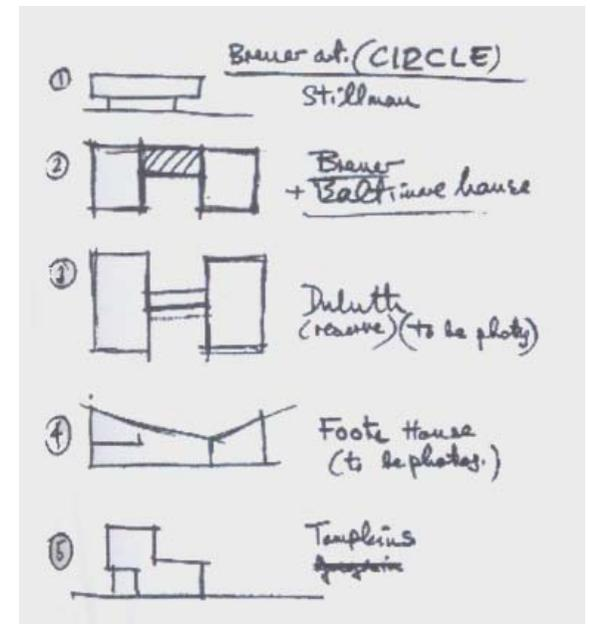 Breuer art. (CIRCLE)
① Stillman
② Breuer
+ Baltimore house
③ Duluth
(reserve) (to be photog)
④ Foote House
(to be photog.)
⑤ Tompkins